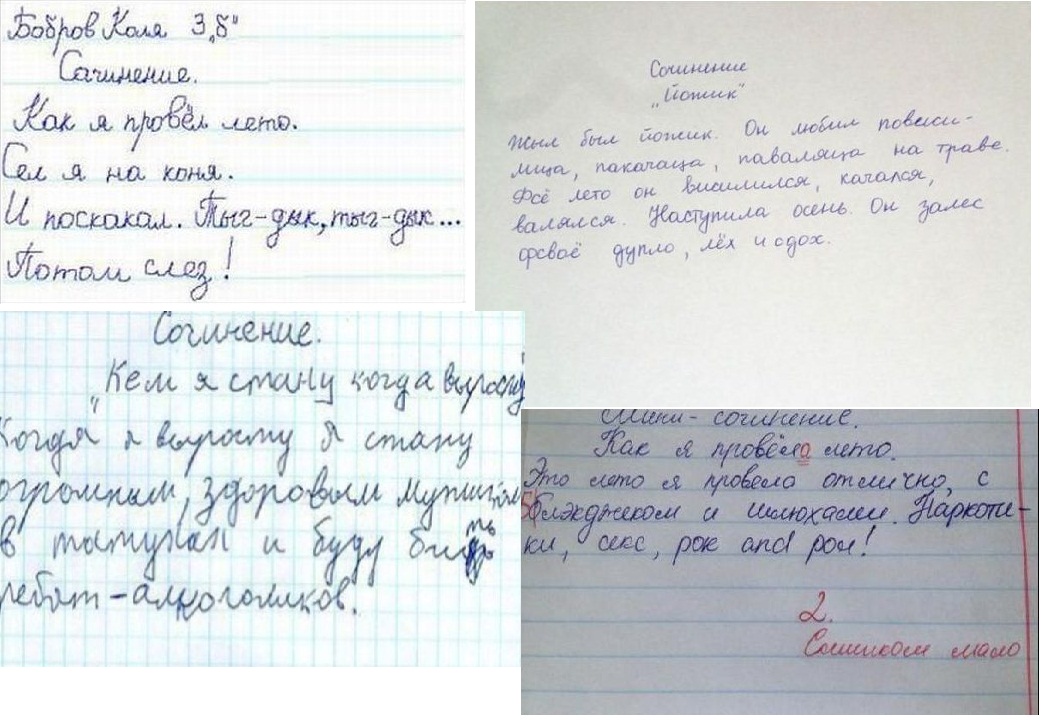 Бобров Коля 3 „б"
Сачинение.
Как я провёл лето.
Сел я на коня.
И поскакал. Тыг-дык, тыг-дык...
Потом слез!
Сочинение
„Йожик"
Жыл был йожик. Он любил повыси-
мица, пакачаца, паваляца на траве.
Фсё лето он висилился, качался,
валялся. Наступила осень. Он залес
фсваё дупло, лёх и сдох.
Сочинение.
„Кем я стану когда вырасту
Когда я вырасту я стану
огромным, здоровым мужиком
в татухах и буду бить
ребят-алкоголиков.
Мини-сочинение.
Как я провёла лето.
Это лето я провела отлично, с
блэкджеком и шлюхами. Наркоти-
ки, секс, рок and рол!
2.
Слишком мало